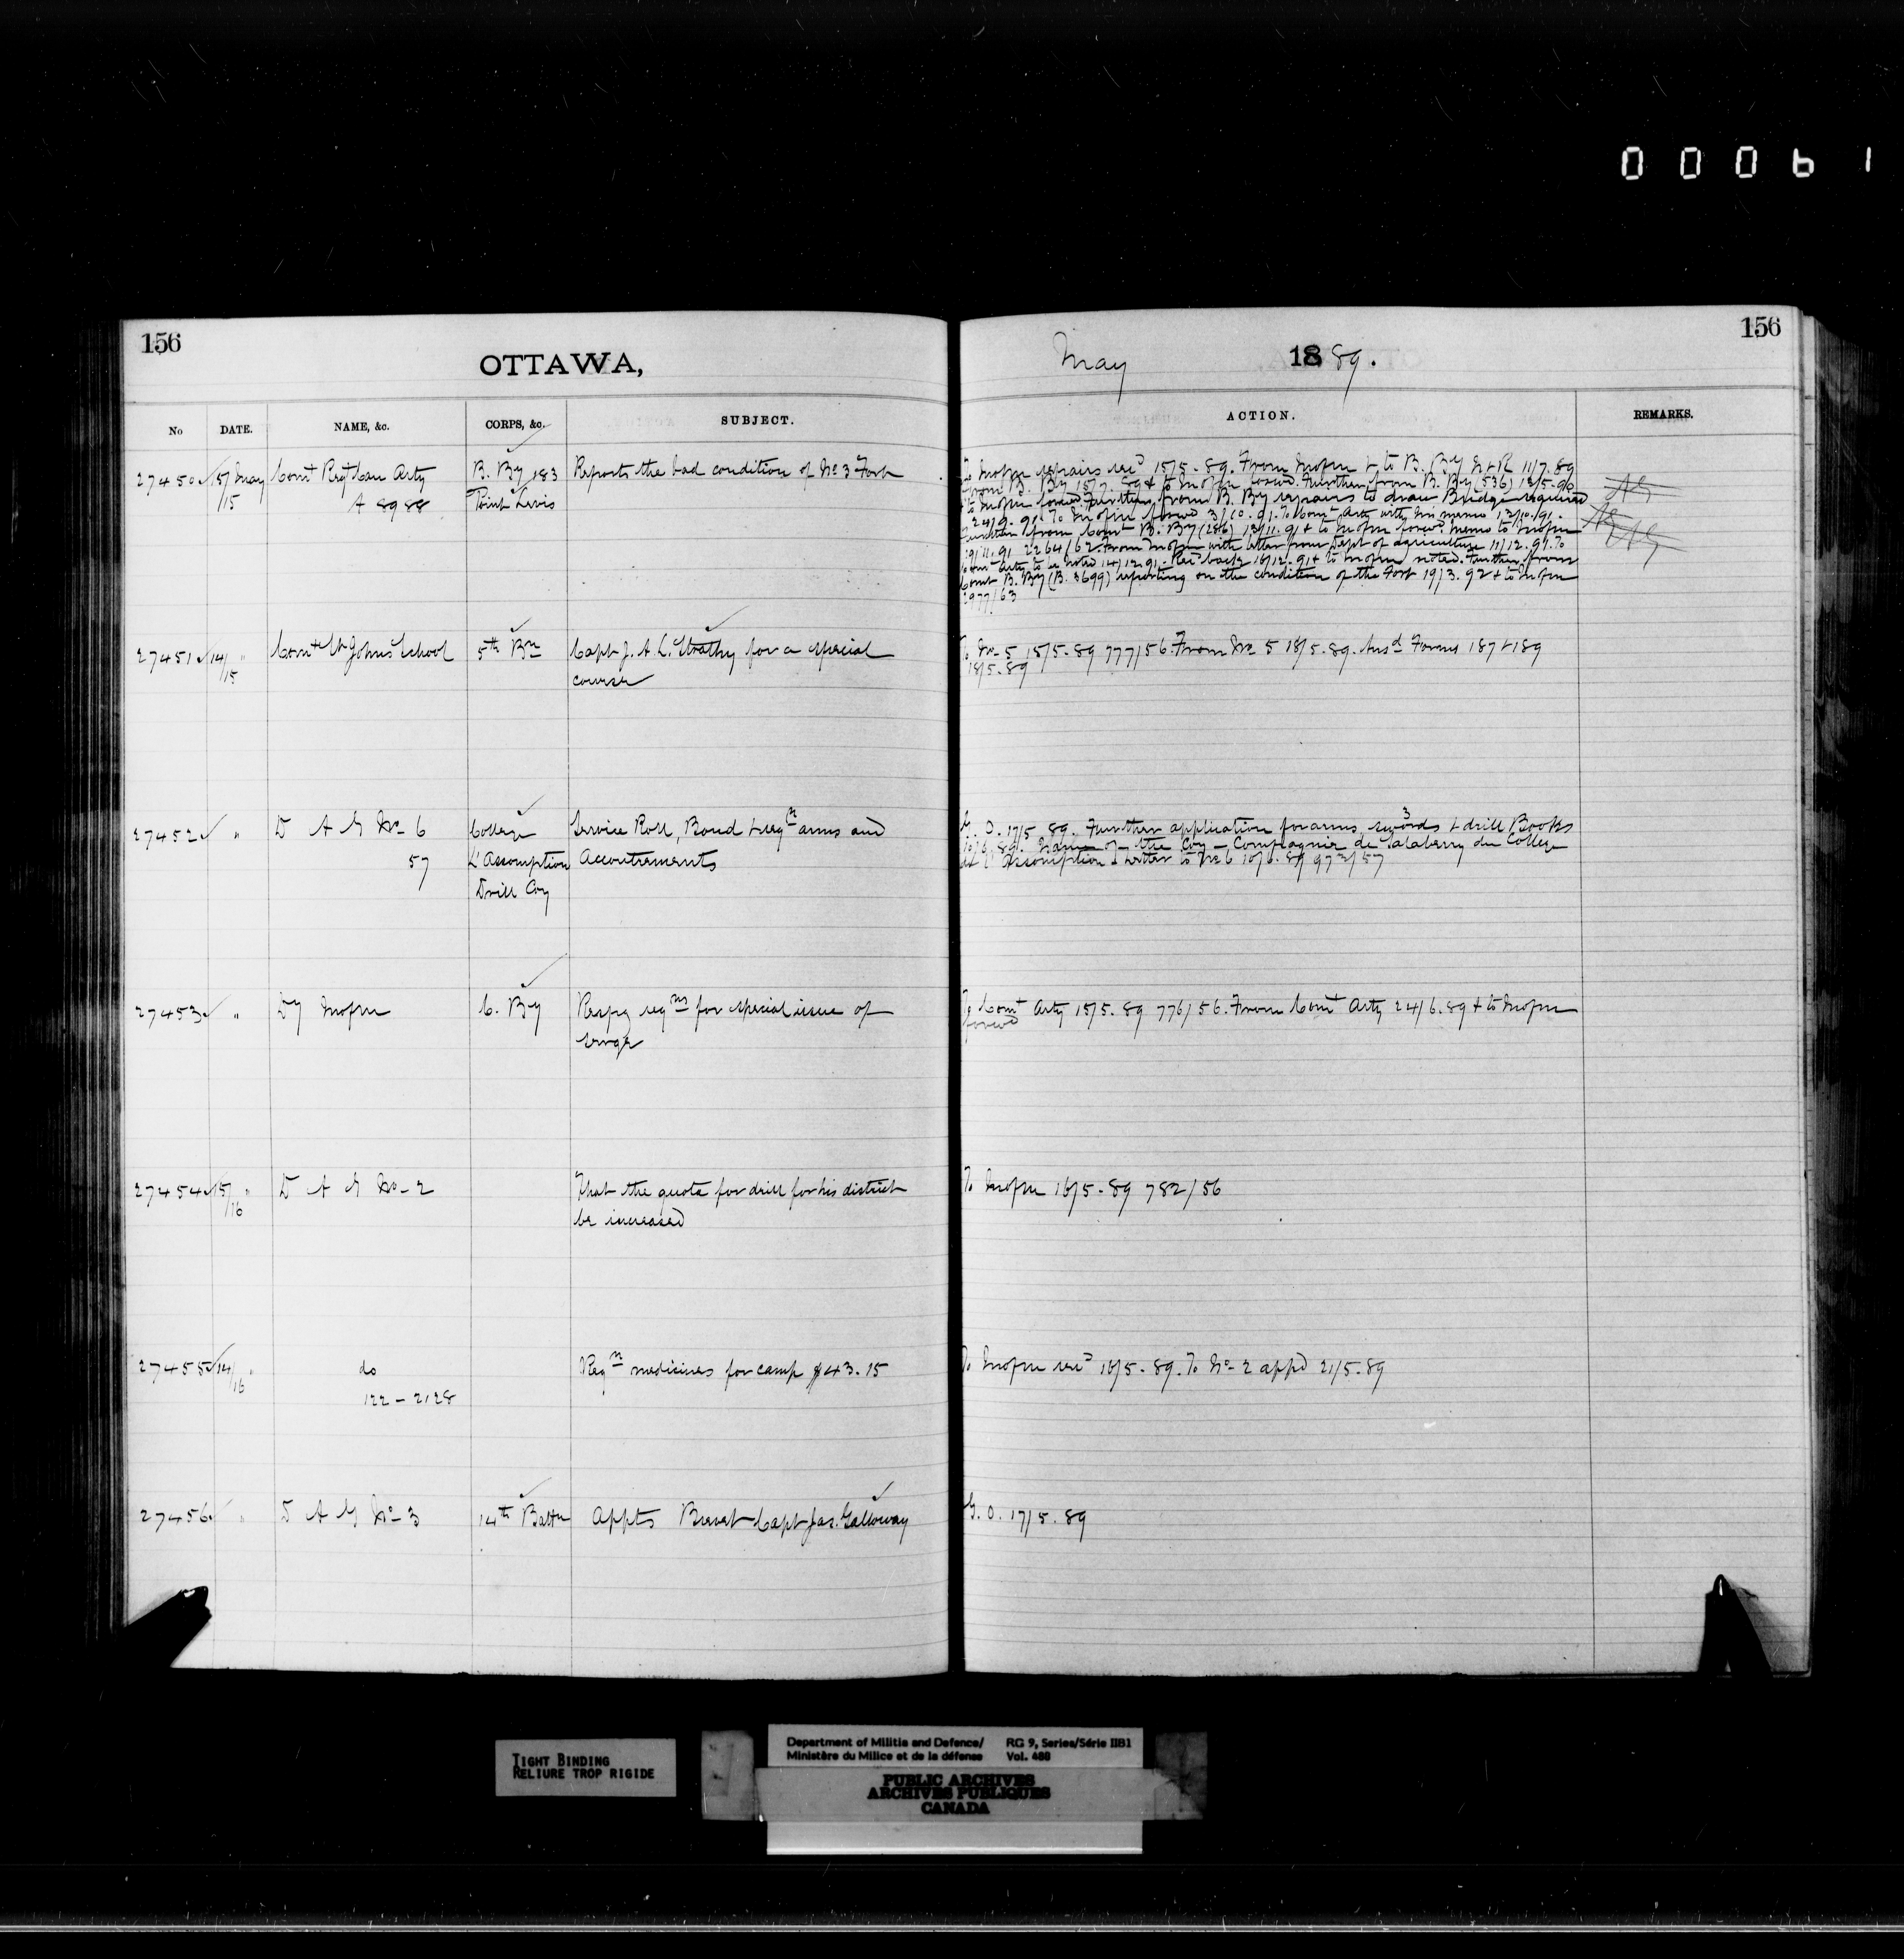 00061
156
OTTAWA,
No DATE. NAME, &c. CORPS, &c. SUBJECT.
27450 15/ May Comt Regt Can Arty B. By 183 Reports the bad condition of No 3 Fort
/15 A 8988 Point Levis
27451 14/ " Comt St Johns School 5th Bn Capt J. A. L. Strathy for a special
/15 course
27452 " D A G No 6 College Service Roll, Bond & reqn arms and
57 L'Assomption Accoutrements
Drill Coy
27453 " Dy C. By Respg reqns for special issue of
serge
27454 15/ " D A G No 2 That the quota for drill for his district
/16 be increased
27455 14/ " do Reqn medicines for camp $43.15
/16 122 – 2128
27456 " D A G No 3 14th Battn Appts Brevet Capt Jas. Galloway
156
May 1889.
ACTION. REMARKS.
repairs 15/5.89. From & to B. By 11/7.89
from B. By 15/7.89 & to Further from B. By (536) 13/5.90
Further from B. By repairs to draw Bridge required
24/9.91 To 3/10.91. To Comt Arty with his memo 13/10/91.
Further from Comt B. By (286) 13/11.91 & to memo to
19/11.91 2264/62. From with letter from Dept of agriculture 11/12.91. To
Comt Arty to be noted 14/12.91. Recd back 18/12.91 & to noted. Further from
Comt B. By (B. 3699) reporting on the condition of the Fort 19/3.92 & to
2977/63
To No 5 15/5.89 777/56. From No 5 18/5.89. Ansd Forms 187 & 189
18/5.89
G. O. 17/5 89. Further application for arms, 3 swords & drill Books
10/6.89. Name of the Coy – Compagnie de Salaberry du College
de l'Assomption. Letter to No 6 10/6.89 973/57
To Comt Arty 15/5.89 776/56. From Comt Arty 24/6.89 & to
forwd
To 16/5.89 782/56
To 16/5.89. To No 2 appd 21/5.89
G. O. 17/5.89
TIGHT BINDING
RELIURE TROP RIGIDE
Department of Militia and Defence/ RG 9, Series/Série IIB1
Ministère du Milice et de la défense Vol. 480
PUBLIC ARCHIVES
ARCHIVES PUBLIQUES
CANADA